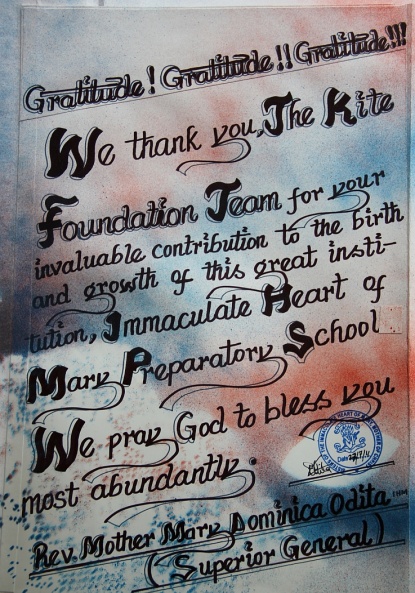 Gratitude! Gratitude!! Gratitude!!!
We thank you, The Kite
Foundation Team for your
invaluable contribution to the birth
and growth of this great insti-
tution, Immaculate Heart of
Mary Preparatory School
We pray God to bless you
most abundantly.
Rev. Mother Mary Dominica Odita IHM
(Superior General)